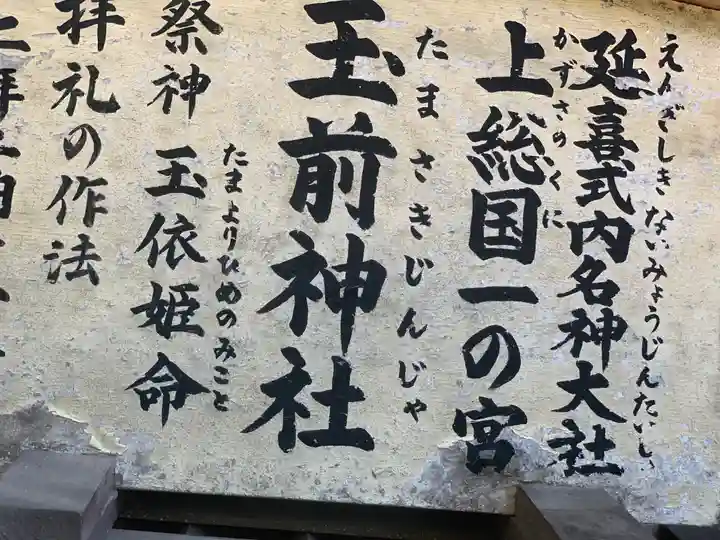 えんぎしきないみょうじんたいしゃ
延喜式内名神大社
かずさのくに
上総国一の宮
たまさきじんじゃ
玉前神社
たまよりひめのみこと
祭神 玉依姫命
拝礼の作法
二拝二拍